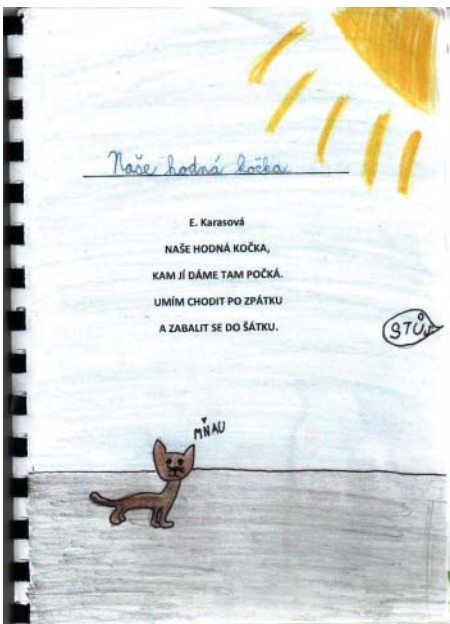 Naše hodná kočka
E. Karasová
NAŠE HODNÁ KOČKA,
KAM JÍ DÁME TAM POČKÁ.
UMÍM CHODIT PO ZPÁTKU
A ZABALIT SE DO ŠÁTKU.
STŮJ
MŇAU